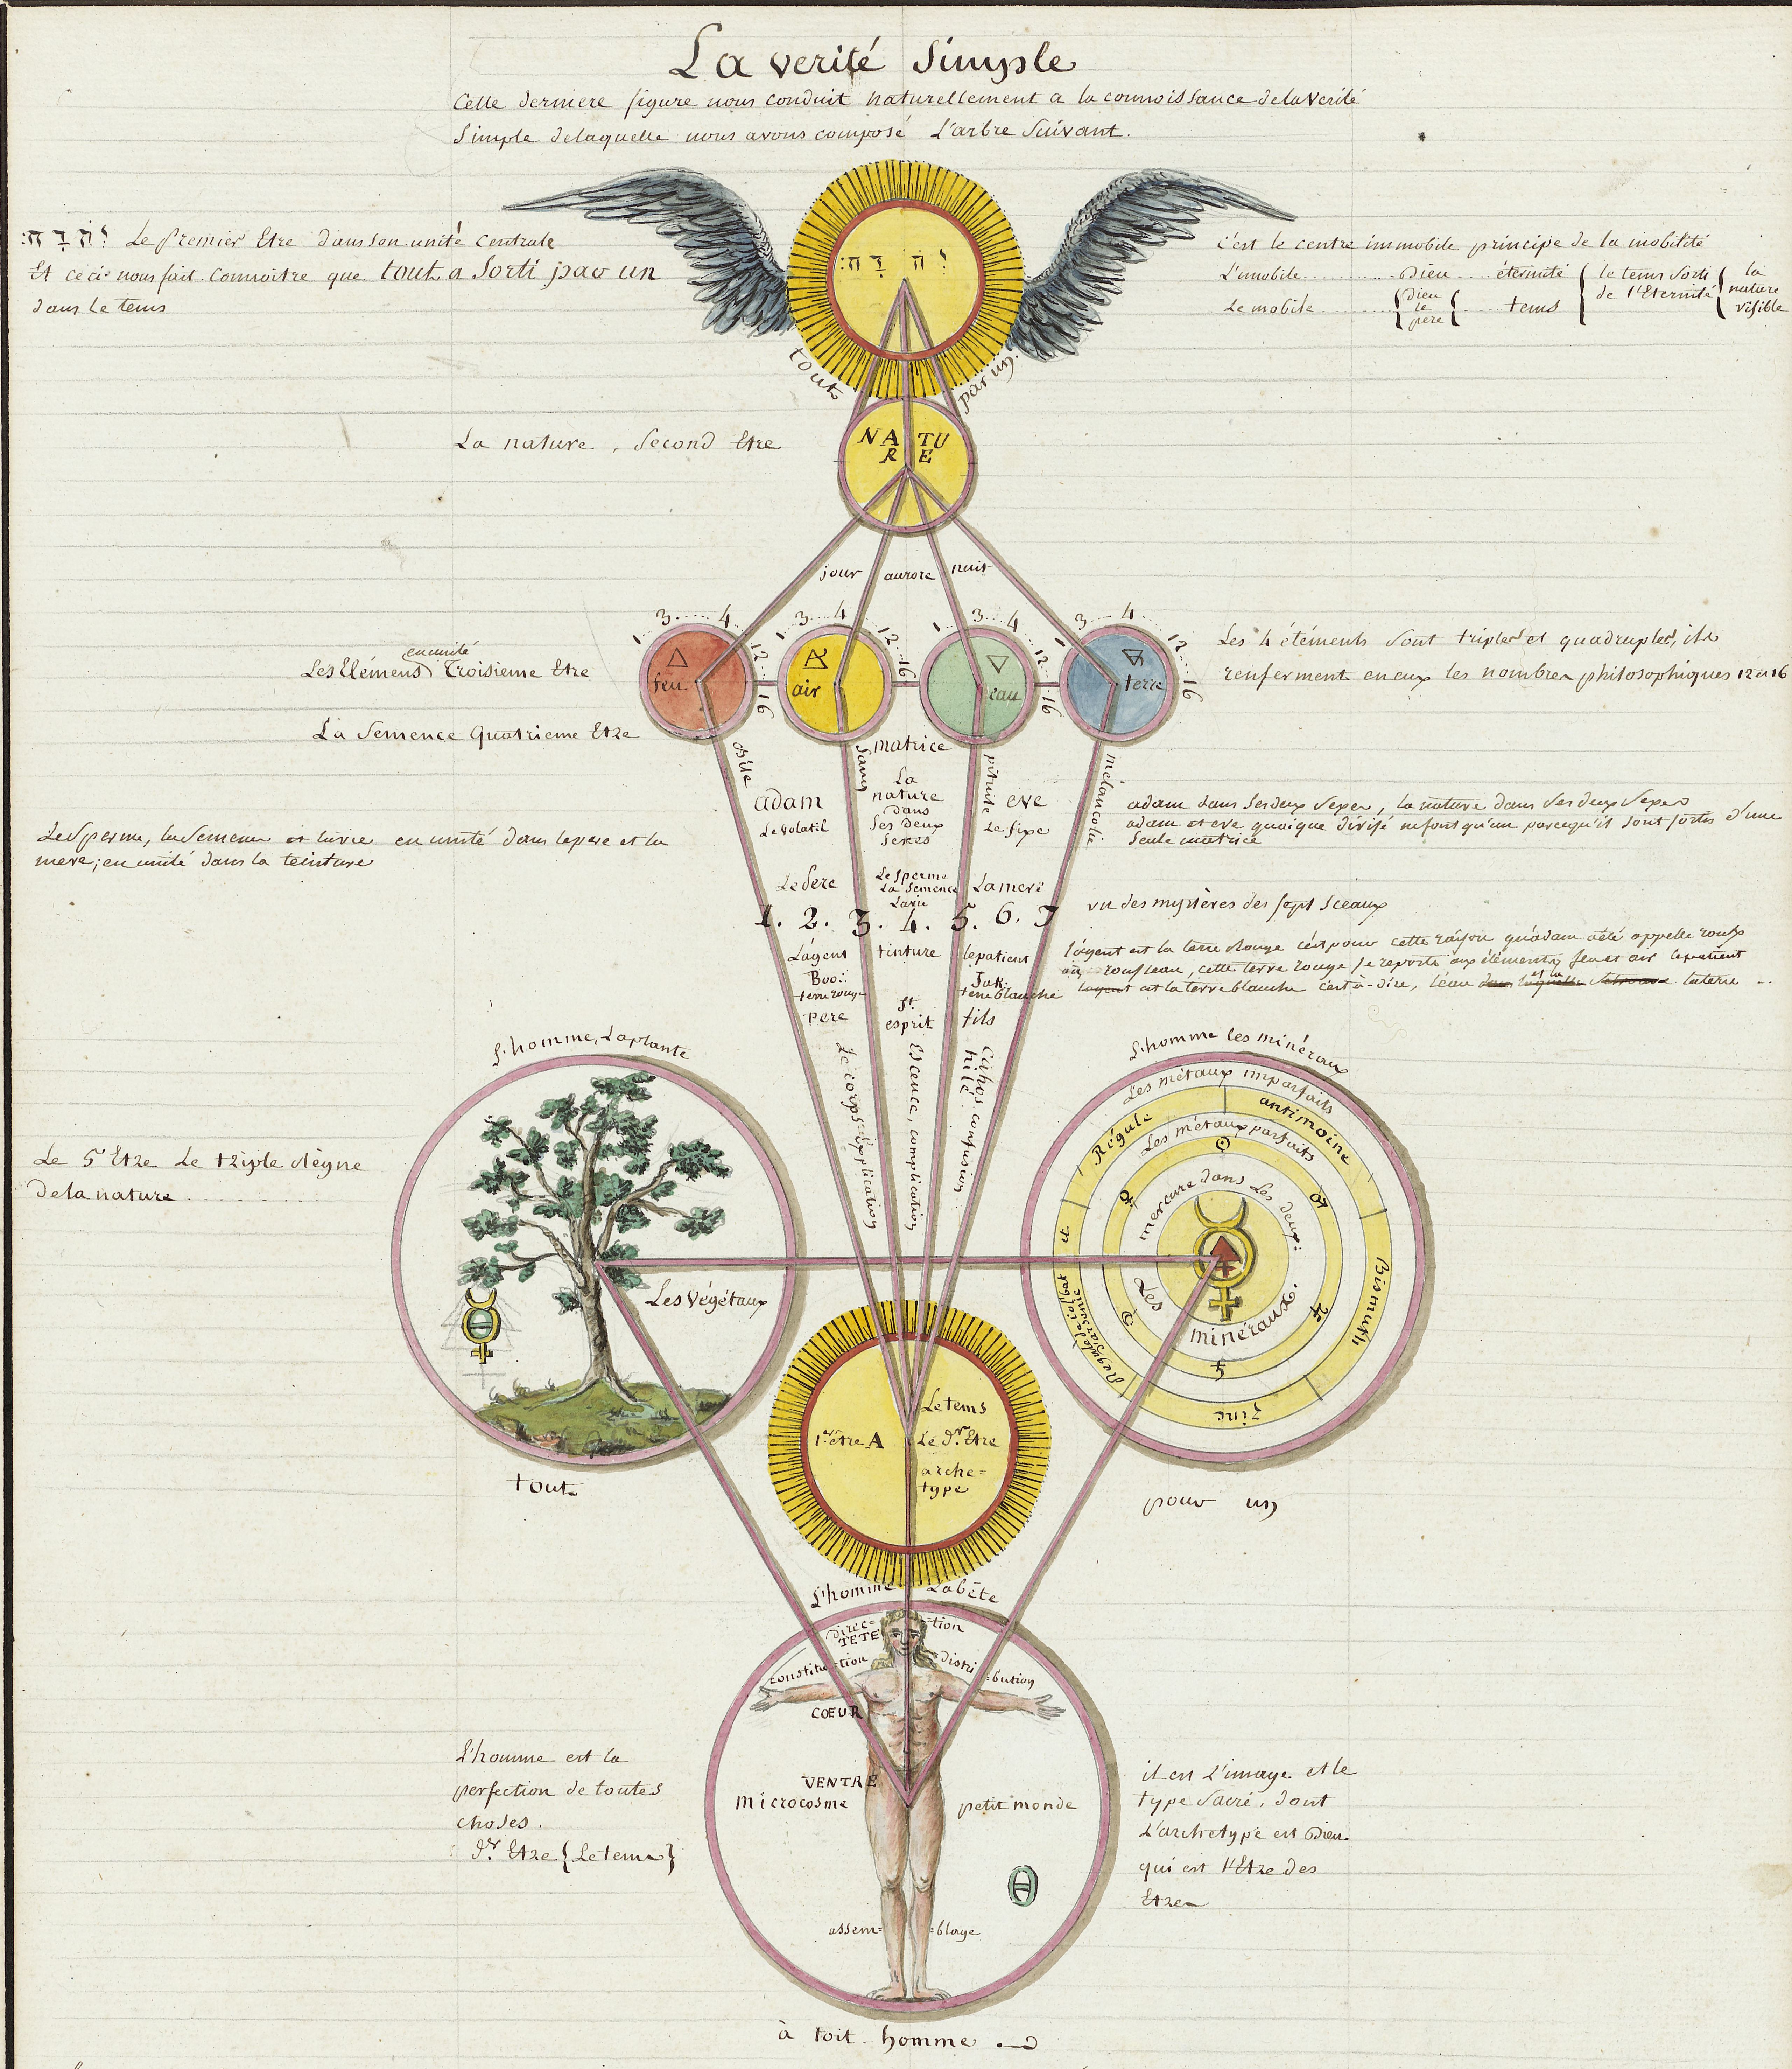 La verité Simple
Cette derniere figure nous conduit naturellement a la connoissance de la verité
Simple de laquelle nous avons composé L'arbre Suivant.
יהוה: Le premier Etre dans son unité centrale
Et ceci nous fait connoitre que tout a Sorti par un
dans le tems
c'est le centre immobile principe de la mobilité
L'imobile Dieu éternité
Le mobile Dieu le pere tems
le tems Sorti
de l'Eternité
la
nature
visible
יהוה:
tout par un
La nature, Second Etre
NA TU
R E
jour aurore nuit
1 3 4 12 16
1 3 4 12 16
1 3 4 12 16
1 3 4 12 16
en unité
Les Elémens Troisieme Etre
feu
air
eau
terre
Les 4 éléments sont triples et quadruples, ils
renferment en eux les nombres philosophiques 12 et 16
La Semence Quatrieme Etre
bile
Sang
pituite
mélancolie
matrice
adam
Le volatil
La
nature
dans
Ses deux
Sexes
eve
Le fixe
adam dans Ses deux Sexes, la nature dans Ses deux Sexes
adam et eve quoique divisé ne font qu'un parcequ'il sont sortis d'une
Seule matrice
Le Sperme, la Semence et la vie en unité dans le pere et la
mere; en unité dans la teinture
Le Pere
Le Sperme
La Semence
La vie
La mere
1. 2. 3. 4. 5. 6. 7
vu des mystères des sept Sceaux
L'agent
tinture
le patient
Boo:
terre rouge
Jak:
terre blanche
pere
St.
esprit
fils
l'agent est la terre Rouge c'est pour cette raison qu'adam a été appellé roux
ou rousseau, cette terre rouge se reporte aux éléments feu et air le patient
est la terre blanche c'est-à-dire, l'eau et la terre
Le corps: Explication
Escence, complication
Cahos confusion
hilé
L'homme, La plante
L'homme les minéraux
Les métaux imparfaits
Régule
antimoine
Bismuth
Zinc
Regule de Cobat et
d'arsenic
Les métaux parfaits
mercure dans Les deux:
Les minéraux.
Le 5e Etre Le triple Règne
de la nature
Les Végétaux
1er être A
Le tems
Le Dr. Etre
arche=
type
tout
pour un
L'homme La bête
direc= tion
TETE
constitution
distri =bution
COEUR
VENTRE
Microcosme
petit monde
assem= =blage
L'homme est la
perfection de toutes
choses.
Dr. Etre {Le tems}
il est L'image et le
type Sacré, dont
L'archetype est Dieu
qui est l'Etre des
Etres
à toit homme